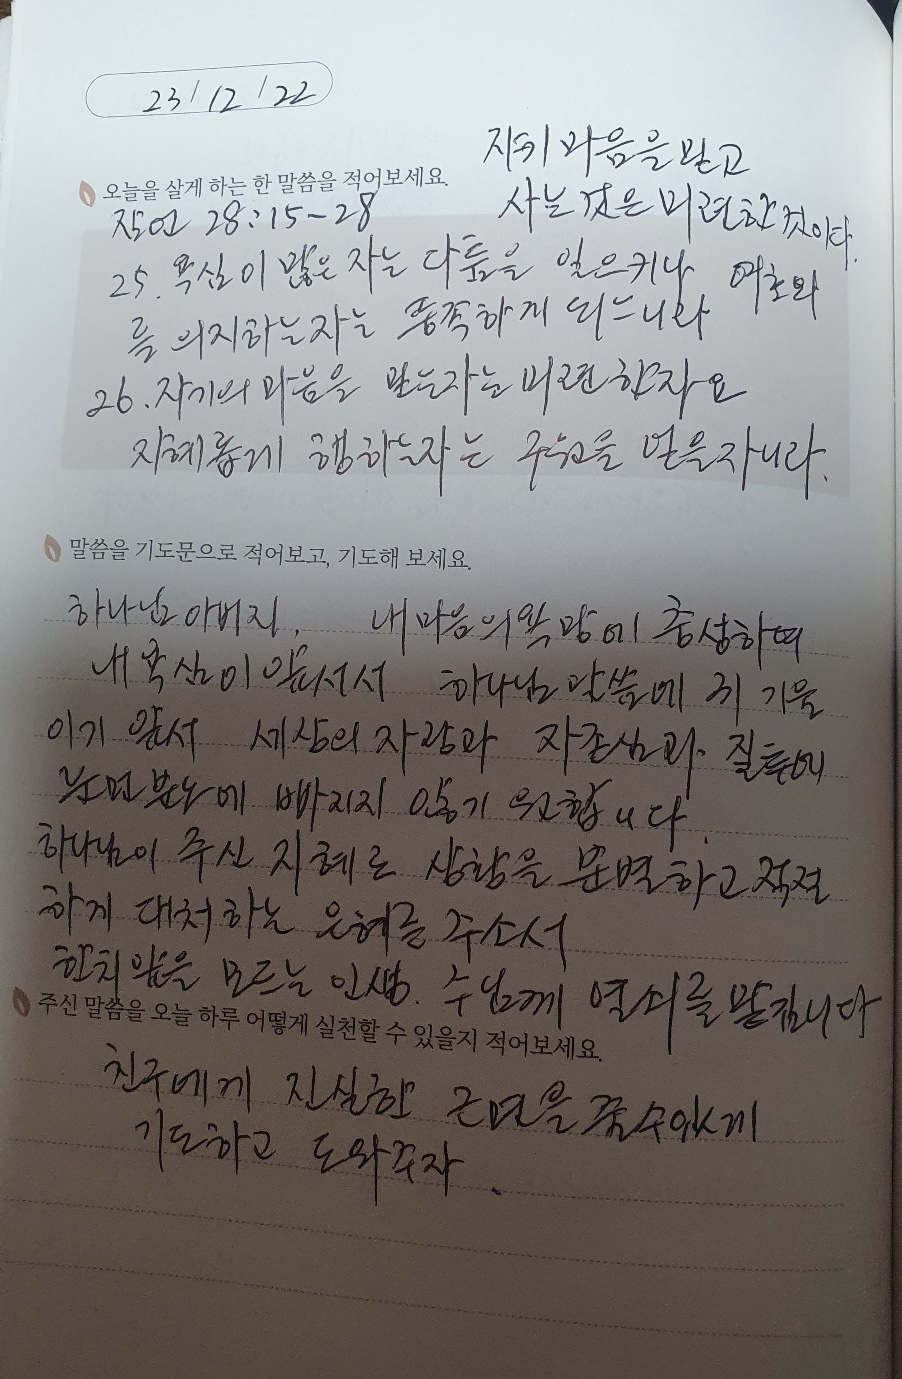 23/12/22
지키 마음을 믿고
사는 것은 미련한 것이다.
오늘을 살게 하는 한 말씀을 적어보세요.
잠언 28:15-28
25. 욕심이 많은 자는 다툼을 일으키나 여호와
를 의지하는자는 풍족하게 되느니라
26. 자기의 마음을 믿는자는 미련한자요
지혜롭게 행하는자는 구원을 얻을자니라.
말씀을 기도문으로 적어보고, 기도해 보세요.
하나님아버지, 내마음의욕망에 충성하여
내 욕심이 앞서서 하나님 말씀에 귀 기울
이기 앞서 세상의 자랑과 자존심과 질투에
눈먼 분노에 빠지지 않기 원합니다.
하나님이 주신 지혜로 상황을 분별하고 적절
하게 대처하는 은혜를 주소서
한치 앞을 모르는 인생. 주님께 열쇠를 맡깁니다
주신 말씀을 오늘 하루 어떻게 실천할 수 있을지 적어보세요.
친구에게 진실한 을 줄수있게
기도하고 도와주자.